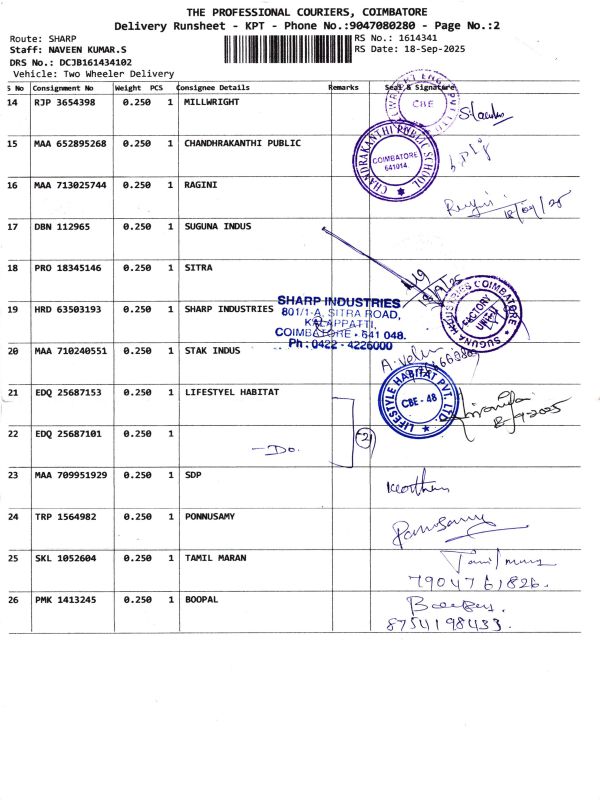 THE PROFESSIONAL COURIERS, COIMBATORE
Delivery Runsheet - KPT - Phone No.:9047080280 - Page No.:2
Route: SHARP
RS No.: 1614341
Staff: NAVEEN KUMAR.S
RS Date: 18-Sep-2025
DRS No.: DCJB161434102
Vehicle: Two Wheeler Delivery
S No Consignment No Weight PCS Consignee Details Remarks Seal & Signature
14 RJP 3654398 0.250 1 MILLWRIGHT
CBE
15 MAA 652895268 0.250 1 CHANDHRAKANTHI PUBLIC
CHANDRAKANTHI PUBLIC SCHOOL
COIMBATORE
641014
16 MAA 713025744 0.250 1 RAGINI
18/09/25
17 DBN 112965 0.250 1 SUGUNA INDUS
18 PRO 18345146 0.250 1 SITRA
SUGUNA INDUSTRIES COIMBATORE
FACTORY
19 HRD 63503193 0.250 1 SHARP INDUSTRIES
SHARP INDUSTRIES
801/1-A, SITRA ROAD,
KALAPPATTI,
COIMBATORE - 641 048.
Ph : 0422 - 4226000
20 MAA 710240551 0.250 1 STAK INDUS
21 EDQ 25687153 0.250 1 LIFESTYEL HABITAT
LIFESTYLE HABITAT PVT. LTD.
CBE - 48
22 EDQ 25687101 0.250 1
-Do.
23 MAA 709951929 0.250 1 SDP
24 TRP 1564982 0.250 1 PONNUSAMY
Ponnusamy
25 SKL 1052604 0.250 1 TAMIL MARAN
7904761826.
26 PMK 1413245 0.250 1 BOOPAL
8754198433.